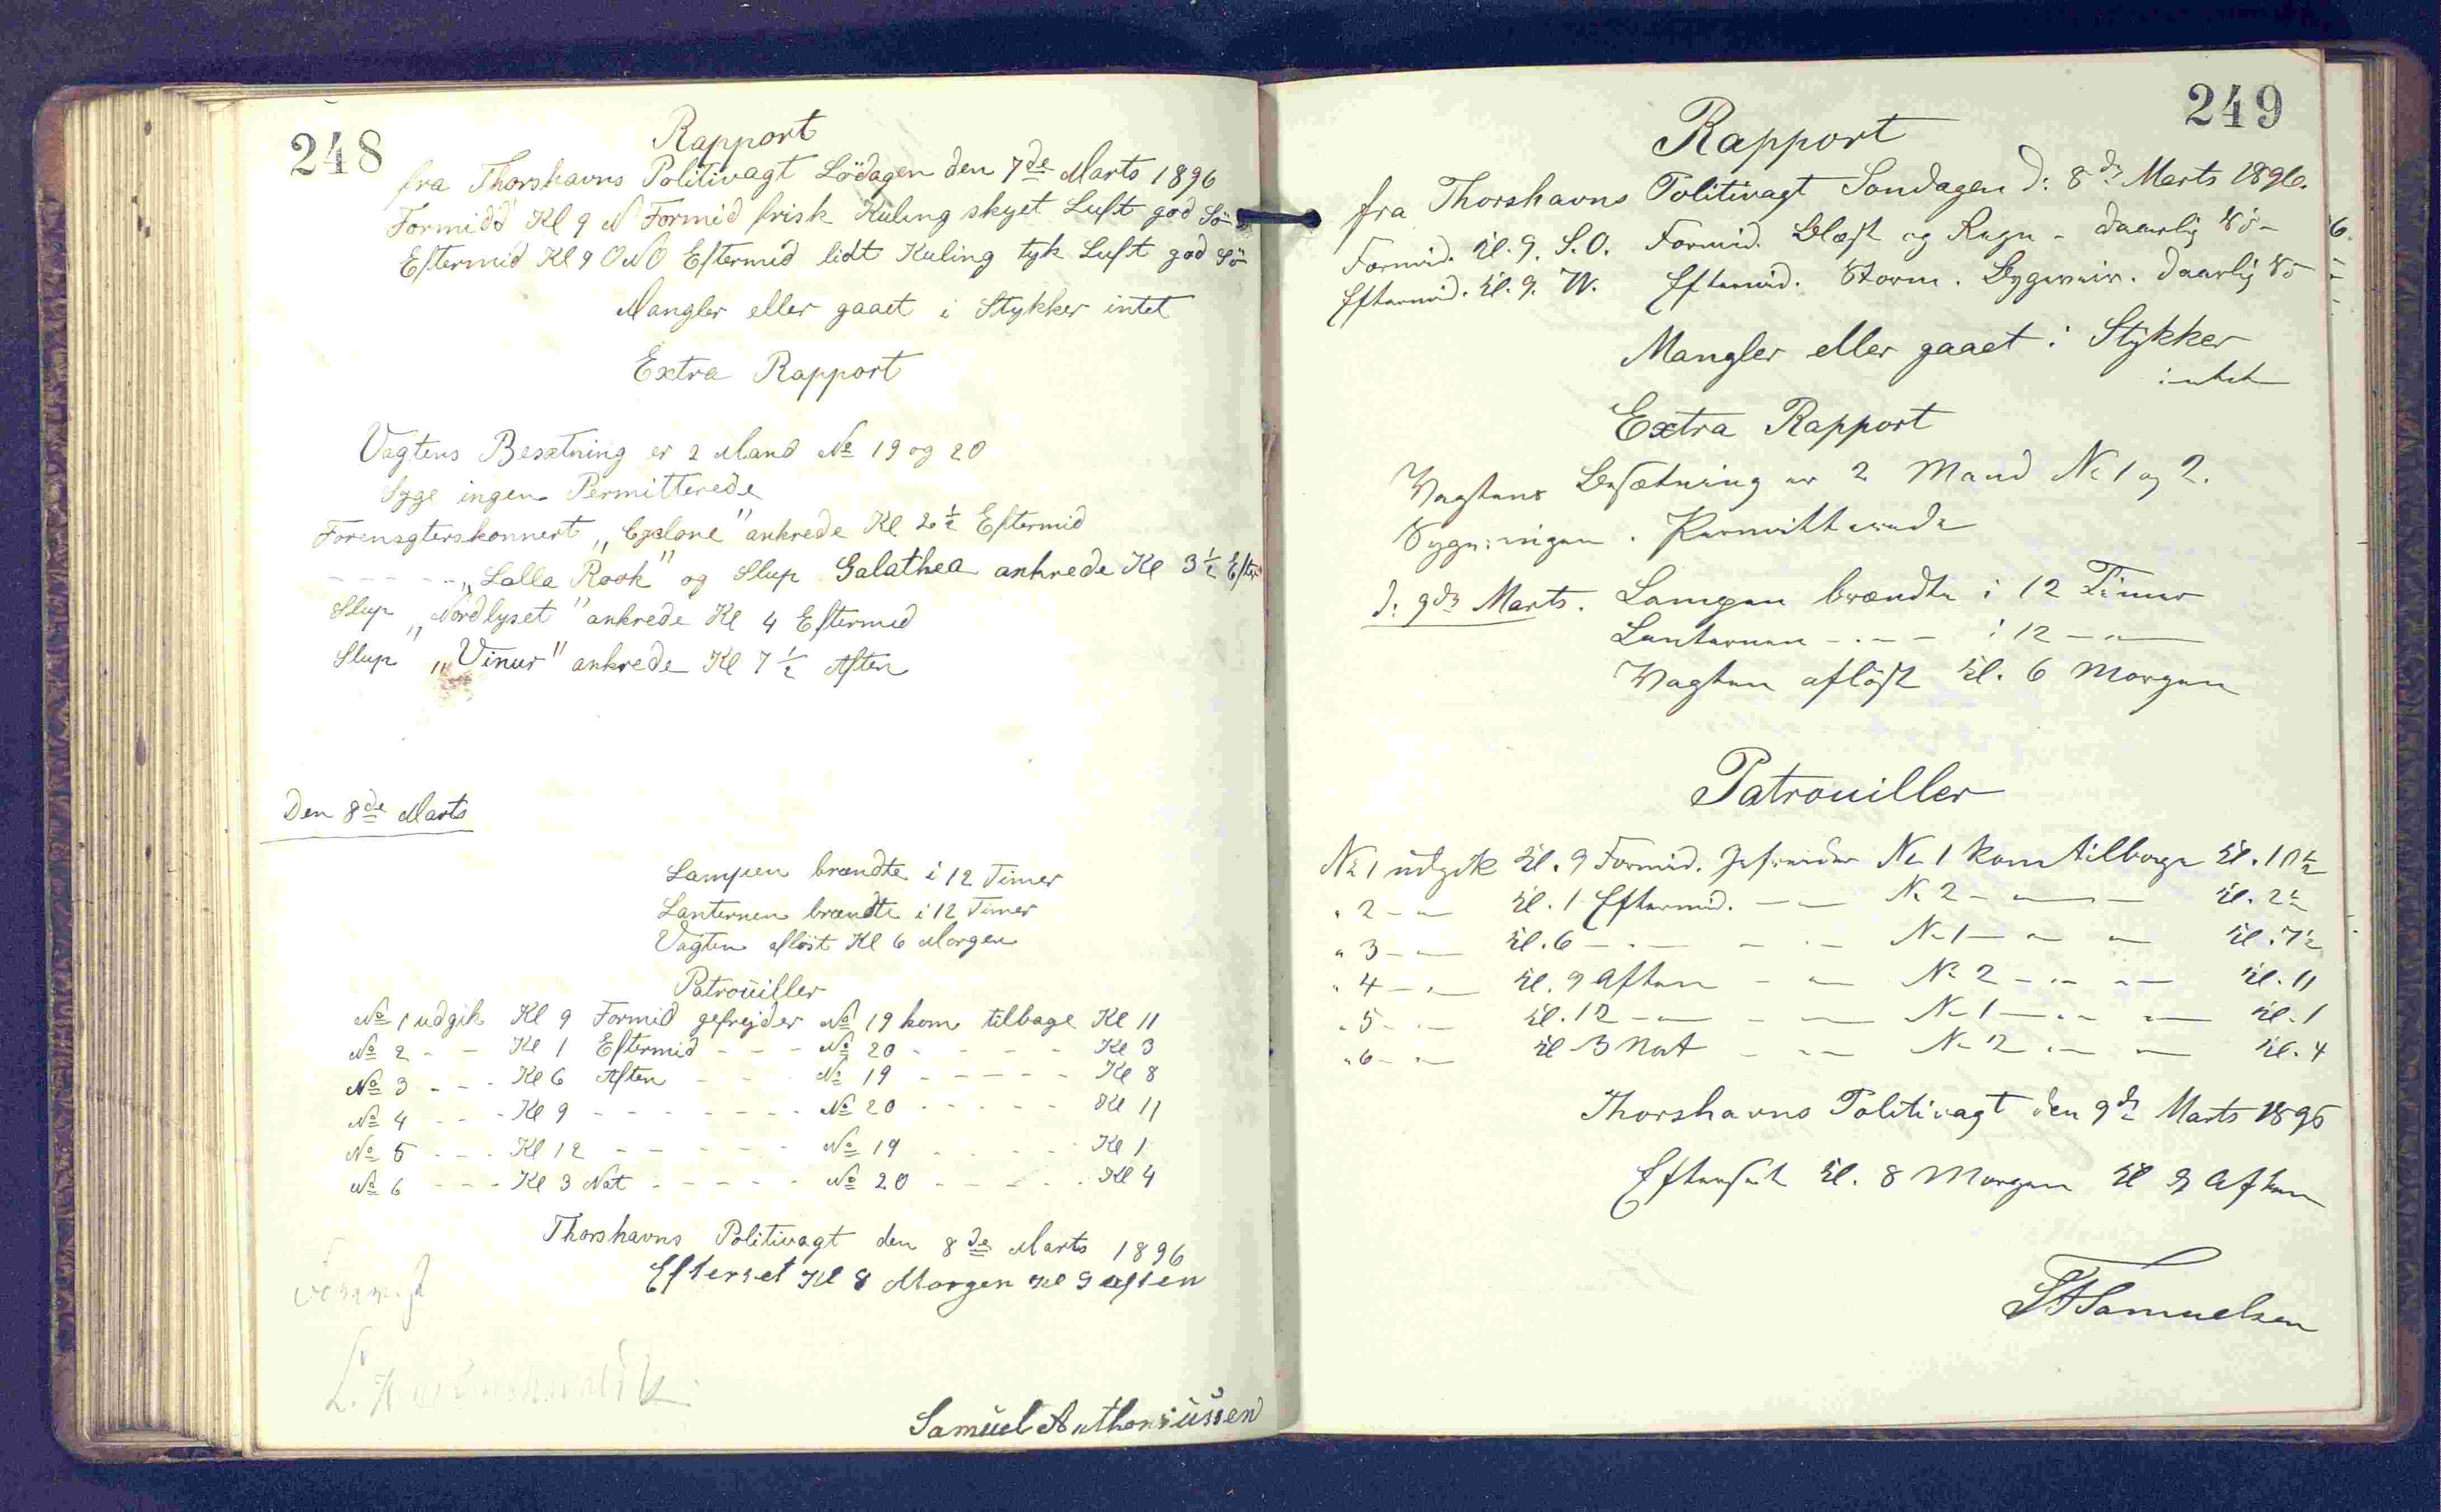 248
Rapport
fra Thorshavns Politivagt Lödagen den 7de Marts 1896
Formidd Kl 9 N Formid frisk Kuling skyet Luft god Sö
Eftermid Kl 9 ONO Eftermid lidt Kuling tyk Luft god Sö
Mangler eller gaaet i Stykker intet
Extra Rapport
Vagtens Besætning er 2 Mand No 19 og 20
Syge ingen Permitterede
"Cyclone" ankrede Kl 2 1/2 Eftermid
- - - - - "Lalla Rook" og Slup Galathea ankrede Kl 3 1/2 Eft
Slup "Nordlyset" ankrede Kl 4 Eftermid
Slup "Vinur" ankrede Kl 7 1/2 Aften
Den 8de Marts
Lampen brændte i 12 Timer
Lanternen brændte i 12 Timer
Vagten aflöst Kl 6 Morgen
Patrouiller
No 1 udgik Kl 9 Formid gefrejder No 19 kom tilbage Kl 11
No 2 - - Kl 1 Eftermid - - - No 20 - - - - Kl 3
No 3 - - - Kl 6 Aften - - No 19 - - - - - Kl 8
No 4 - - - Kl 9 - - - - - - - No 20 - - - - - Kl 11
No 5 - - - Kl 12 - - - - - No 19 - - - - Kl 1
No 6 - - - Kl 3 Nat - - - - - No 20 - - - - - Kl 4
Thorshavns Politivagt den 8de Marts 1896
Efterset Kl 8 Morgen Kl 9 Aften
Samuel Anthoniussen
249
Rapport
fra Thorshavns Politivagt Sondagen d: 8de Marts 1896.
Formid. Kl. 9. S.O. Formid. Blæst og Regn - daarlig Sö -
Eftermid. Kl. 9. W. Eftermid. Storm. Bygeveir. daarlig Sö
Mangler eller gaaet i Stykker
intet
Extra Rapport
Vagtens Besætning er 2 Mand No 1 og 2.
Syge: ingen. Permitterede
d: 9de Marts. Lampen brændte i 12 Timer
Lanternen - - - i 12 - " -
Vagten aflöst Kl. 6 Morgen
Patrouiller
No 1 udgik Kl. 9 Formid. Gefreider No 1 kom tilbage Kl. 10 1/2
" 2 - " - Kl. 1 Eftermid. - - No 2 - " - - Kl. 2 1/2
" 3 - " - Kl. 6 - " - - " - No 1 - " - " - Kl. 7 1/2
" 4 - " - Kl. 9 Aften - " - No 2 - " - " - Kl. 11
" 5 - " - Kl. 12 - " - - " - No 1 - " - " - Kl. 1
" 6 - " - Kl 3 Nat - " - No 2 - " - " - Kl. 4
Thorshavns Politivagt den 9de Marts 1896
Efterset Kl. 8 Morgen Kl 9 Aften
Samuelsen